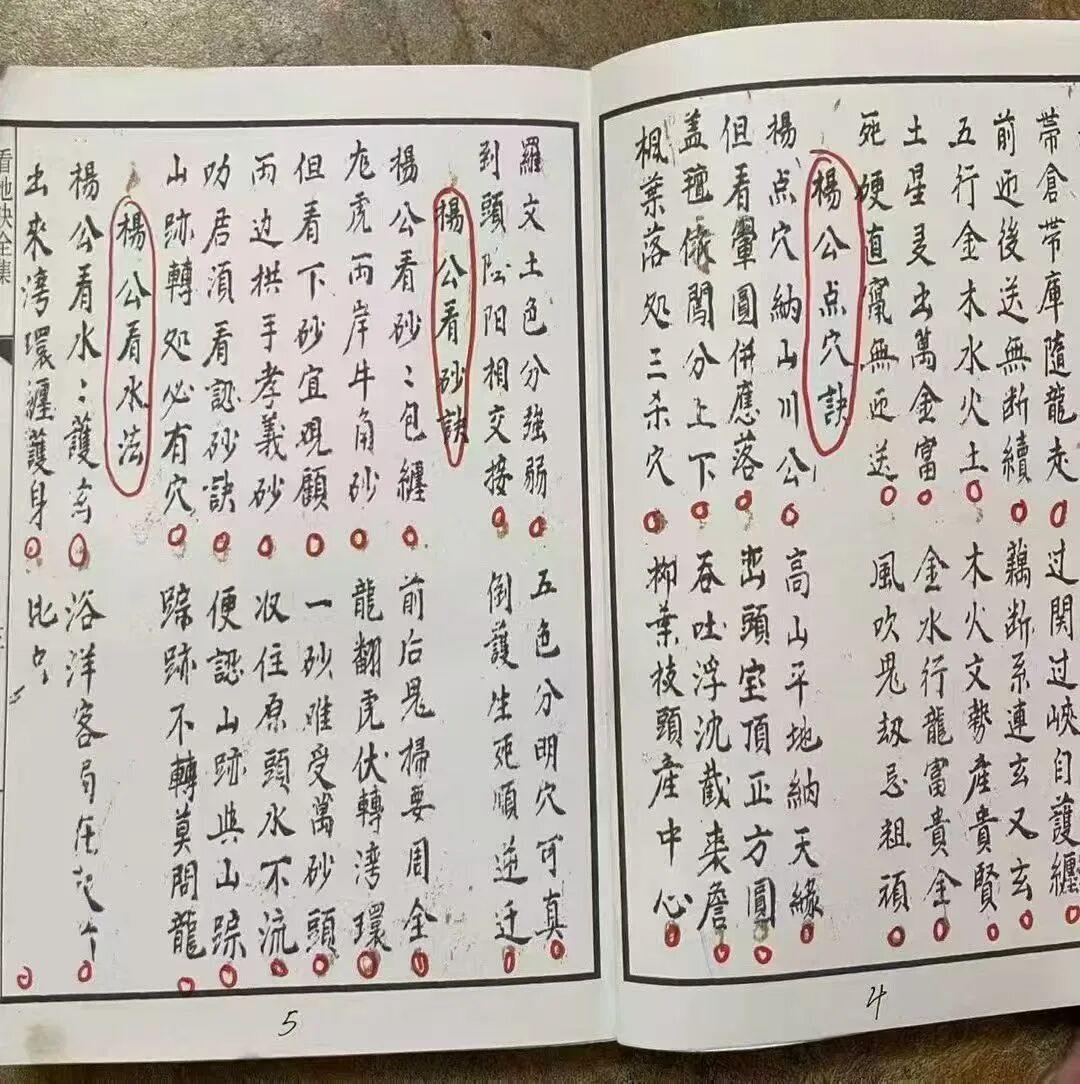 帶倉帶庫隨龍走 过関过峽自護纏
前迎後送無断續 藕断系連玄又玄
五行金木水火土 木火文势產貴賢
土星灵出萬金富 金水行龍富貴金
死硬直竄無迎送 風吹鬼刼忌祖頑
楊公点穴訣
楊点穴納山川公 高山平地納天緣
但看暈圓併應落 出頭室頂正方圓
盖氊依閣分上下 吞吐浮沈截裘簷
楓葉落处三杀穴 柳葉枝頭產中心
4
羅文土色分強弱 五色分明穴可真
到頭阴阳相交接 倒護生死順逆迁
楊公看砂訣
楊公看砂:包纏 前后鬼掃要周全
龙虎兩岸牛角砂 龍翻虎伏轉湾環
但看下砂宜覌顧 一砂难受萬砂頭
両边拱手孝義砂 收住原頭水不流
叻居須看認砂訣 便認山跡與山踪
山跡轉处必有穴 踪跡不轉莫問龍
楊公看水法
楊公看水:護 浴洋客局在
出來湾環纏護身 比
看地訣全集
5